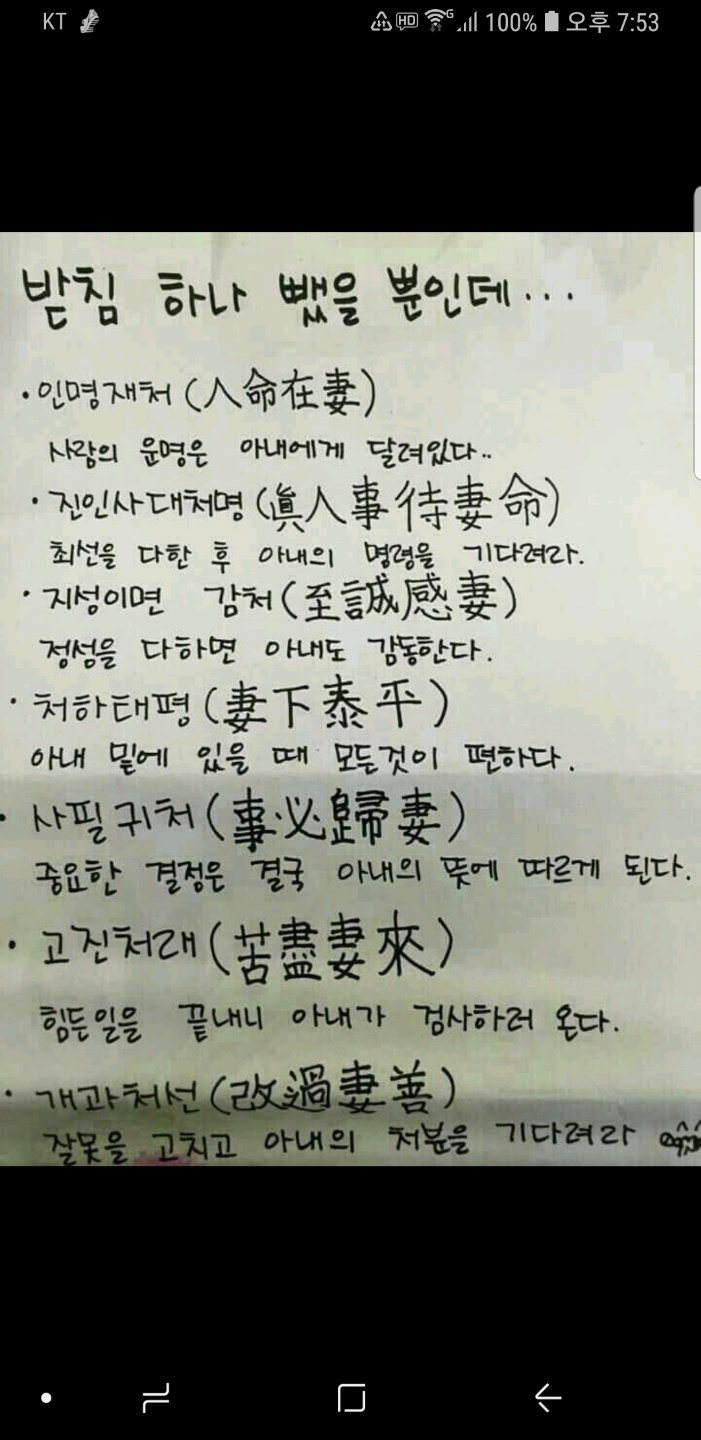 KT HD G 100% 오후 7:53
받침 하나 뺐을 뿐인데...
· 인명재처 (人命在妻)
사람의 운명은 아내에게 달려있다..
· 진인사대처명 (眞人事待妻命)
최선을 다한 후 아내의 명령을 기다려라.
· 지성이면 감처 (至誠感妻)
정성을 다하면 아내도 감동한다.
· 처하태평 (妻下泰平)
아내 밑에 있을 때 모든것이 편하다.
· 사필귀처 (事必歸妻)
중요한 결정은 결국 아내의 뜻에 따르게 된다.
· 고진처래 (苦盡妻來)
힘든일을 끝내니 아내가 검사하러 온다.
· 개과처선 (改過妻善)
잘못을 고치고 아내의 처분을 기다려라